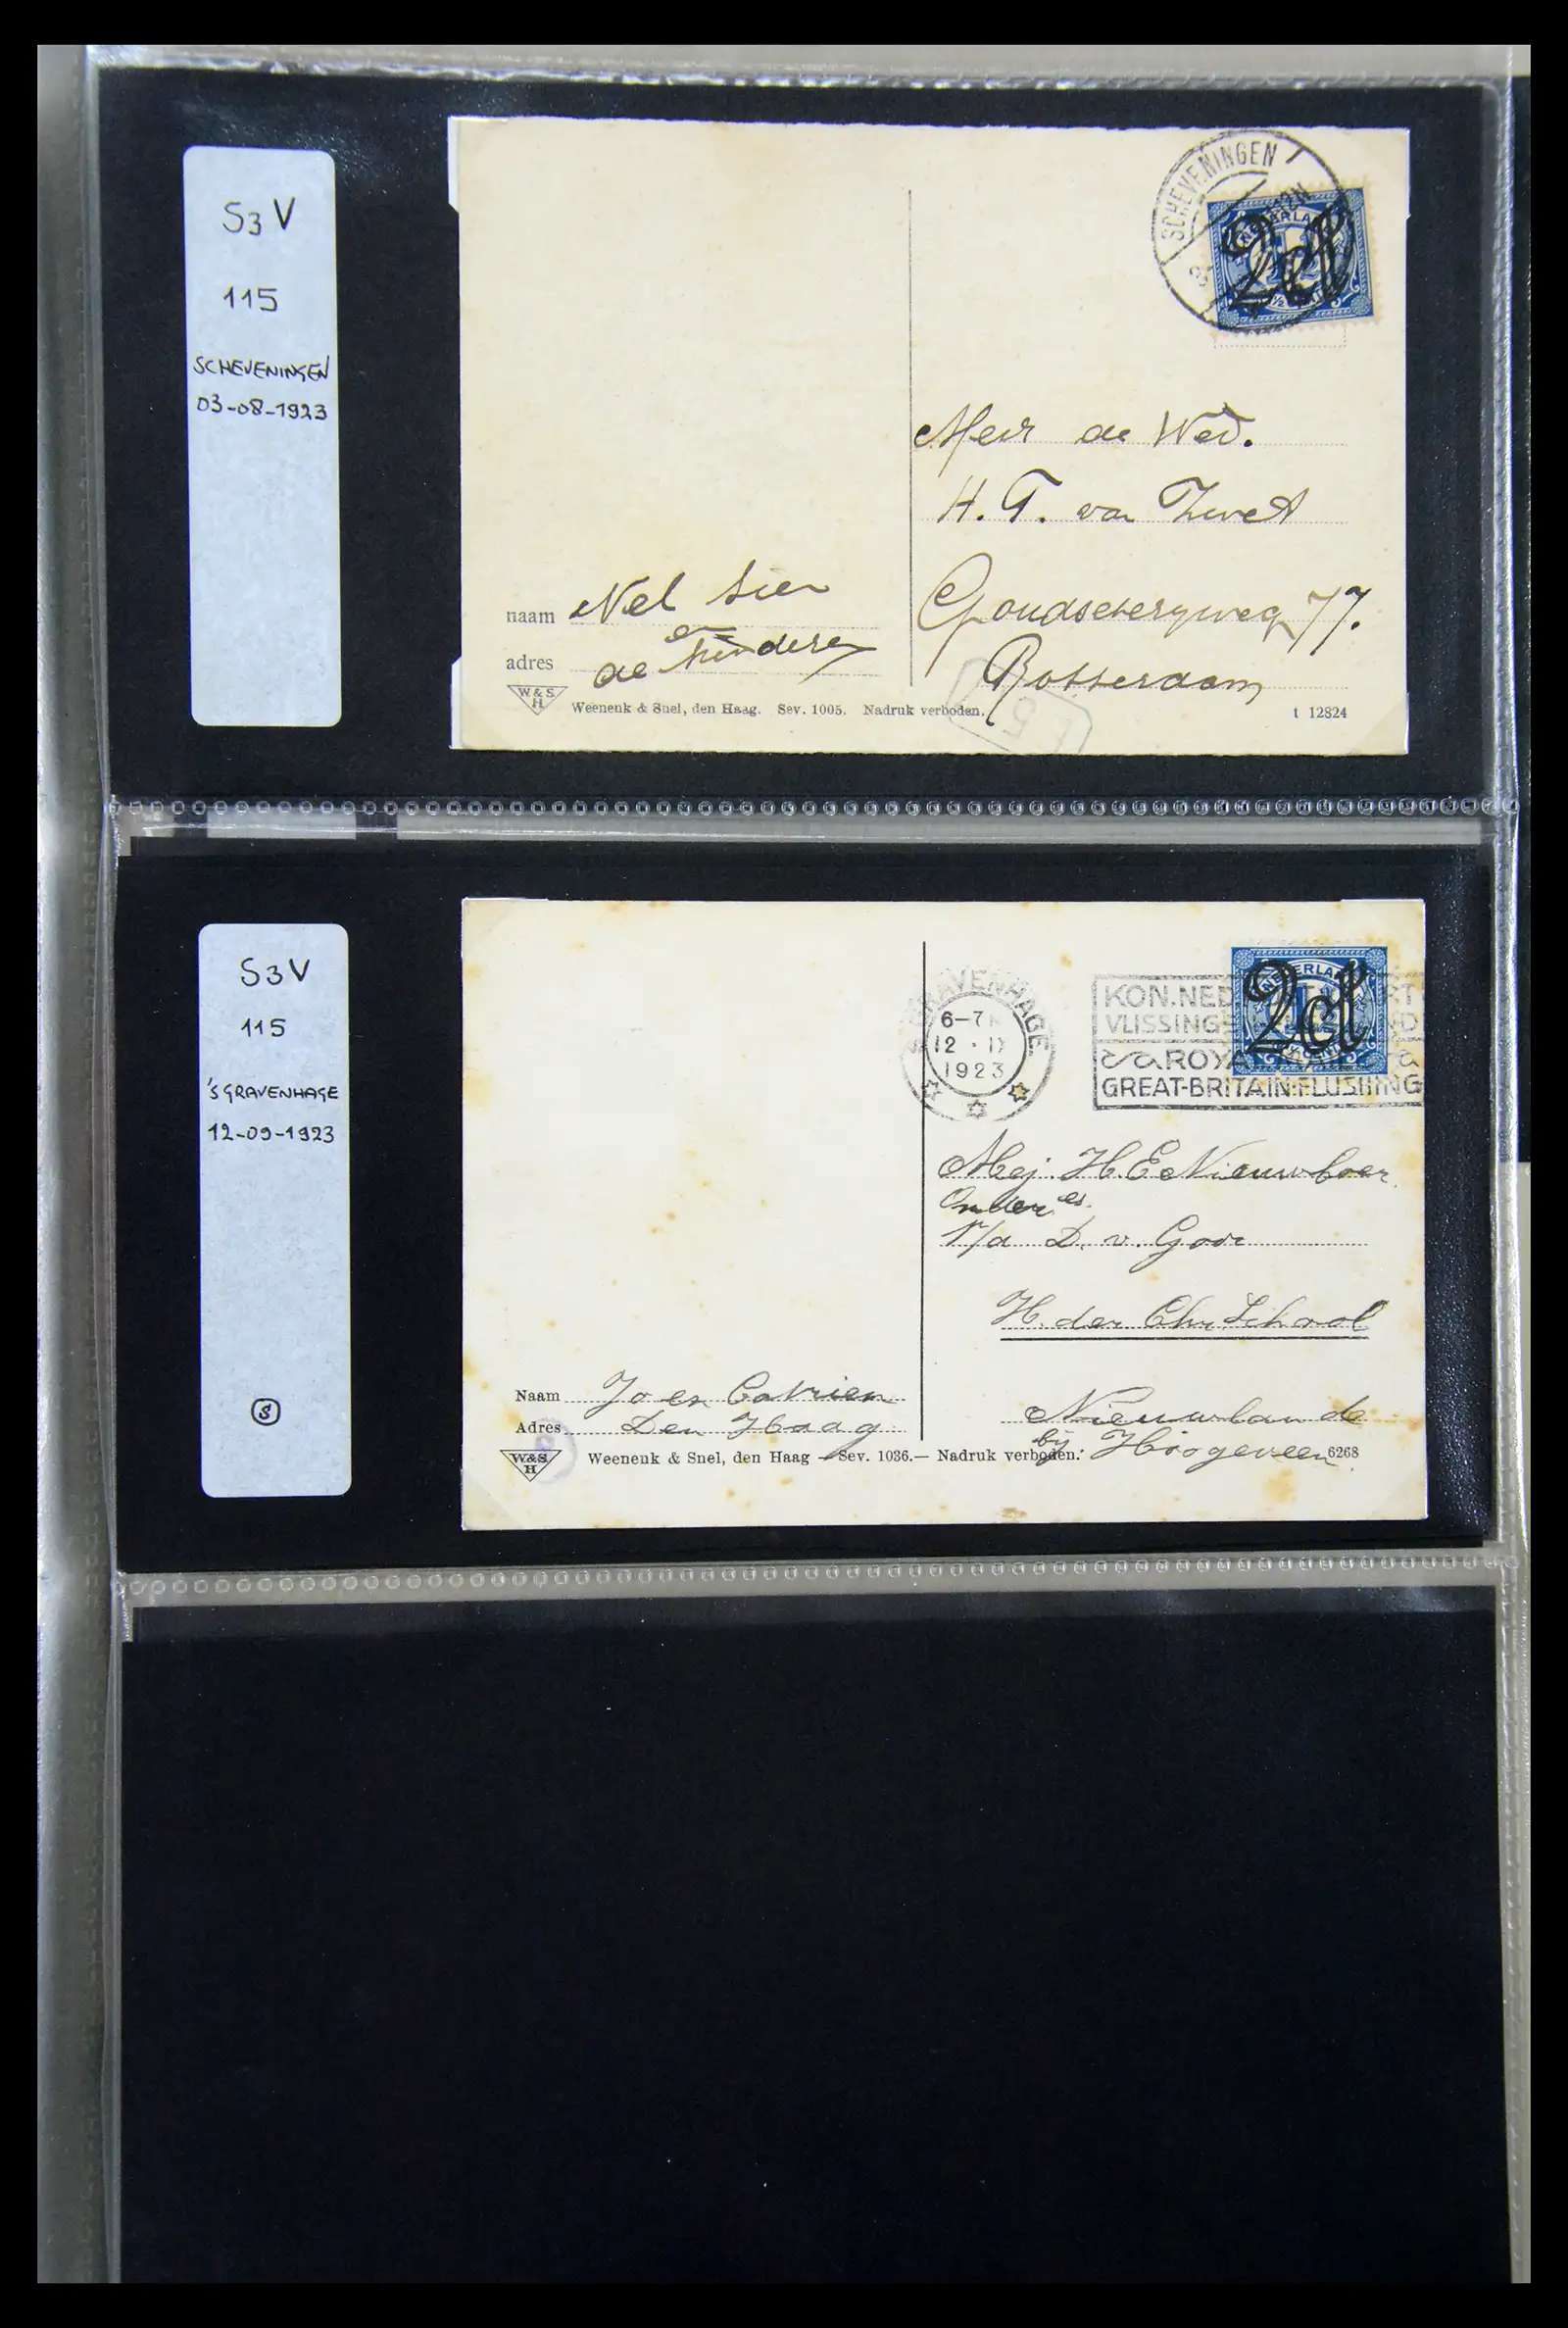 S3V
115
SCHEVENINGEN
03-08-1923
SCHEVENINGEN
12N
NEDERLAND
2ct
Mevr de Wed.
H. G. van Zwet
Goudscheryweg 77.
Rotterdam
naam Nel Sien
en
adres de kinderen
W. & S.
H.
Weenenk & Snel, den Haag. Sev. 1005. Nadruk verboden.
t 12824
S3V
115
'S GRAVENHAGE
12-09-1923
S
'S GRAVENHAGE
6-7N
12 · IX
1923
KON.NED
VLISSING
ROYAL
GREAT-BRITAIN-FLUSHING
NEDERLAND
2ct
Mej. H. E. Nieuwboer
Onder es.
p/a D. v. Goor
H. der Chr School
Nieuwlande
bij Hoogeveen
Naam Jo en Catrien
Adres Den Haag
W.&S.
H
Weenenk & Snel, den Haag — Sev. 1036.— Nadruk verboden.
6268